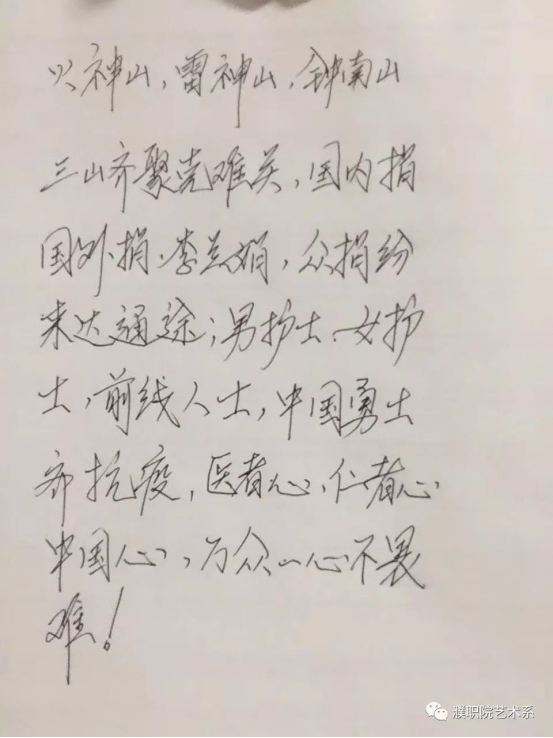 火神山，雷神山，钟南山
三山齐聚克难关，国内捐
国外捐，李兰娟，众捐纷
来达通途；男护士、女护
士，前线人士，中国勇士
齐抗疫，医者心，仁者心
中国心，万众一心不畏
难！
濮职院艺术系